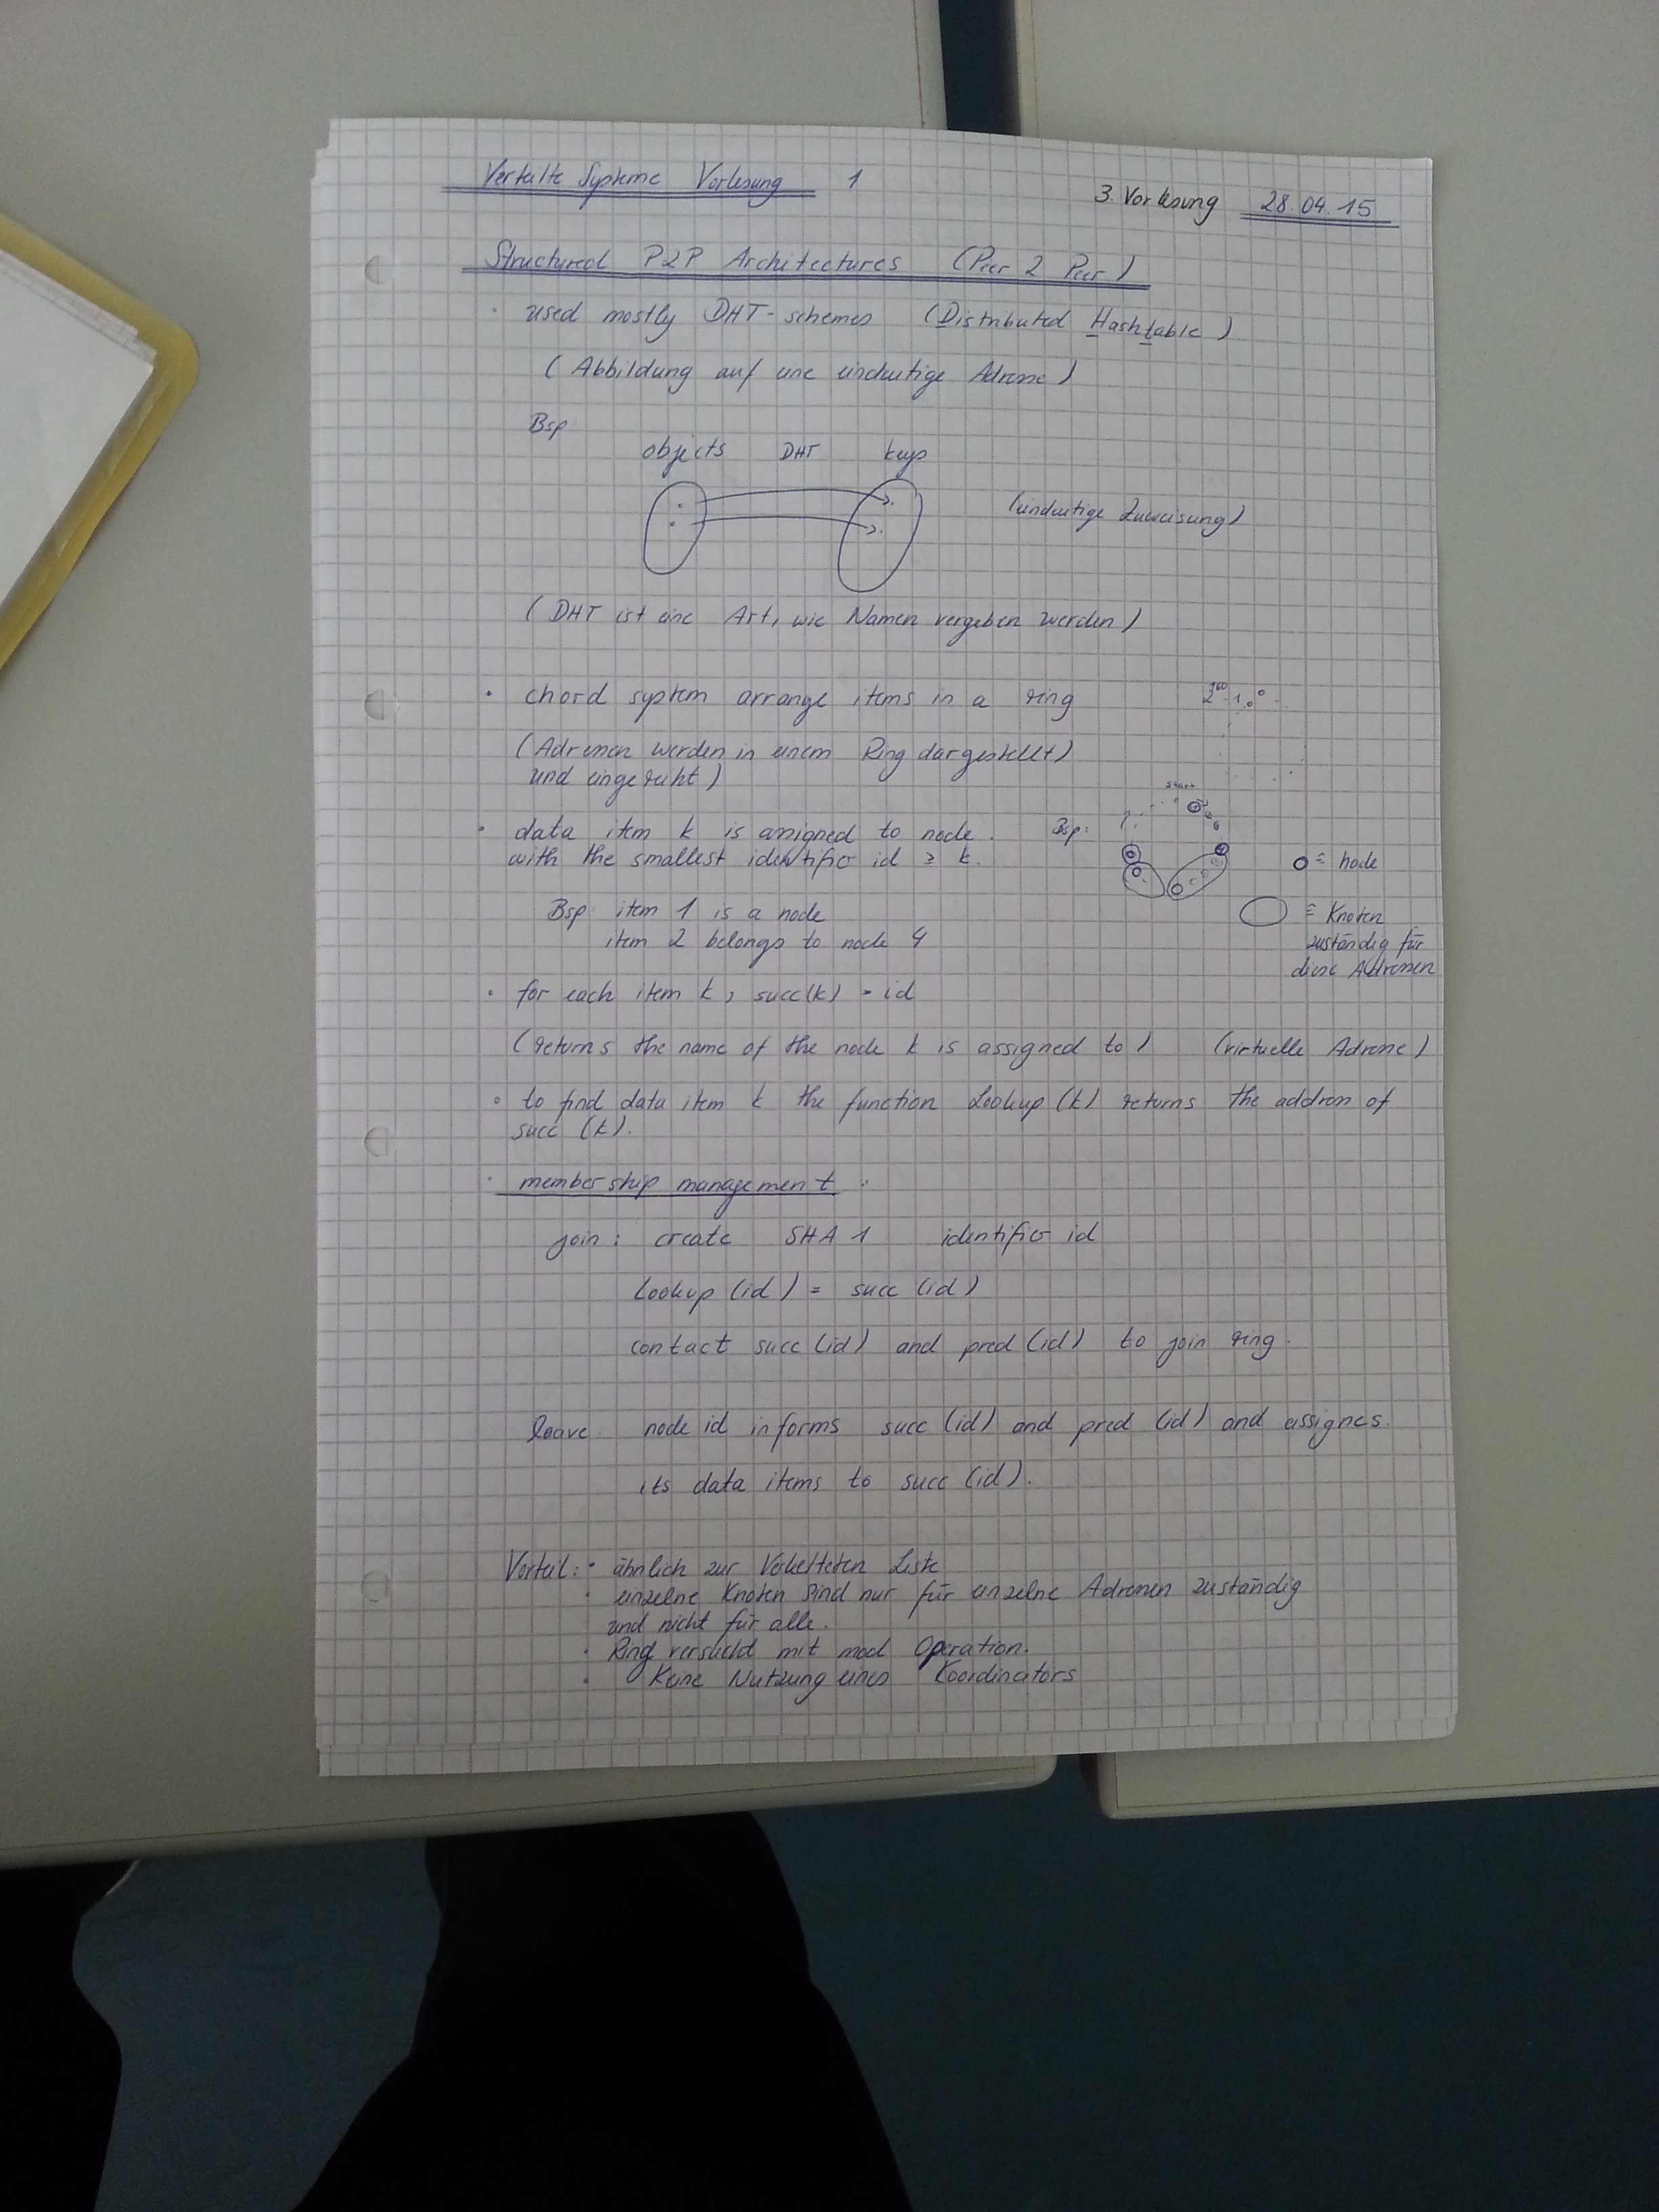 Verteilte Systeme Vorlesung 1
3. Vorlesung 28.04.15
Structured P2P Architectures (Peer 2 Peer)
· used mostly DHT-schemes (Distributed Hashtable)
(Abbildung auf eine eindeutige Adresse)
Bsp:
objects DHT keys
(eindeutige Zuweisung)
(DHT ist eine Art, wie Namen vergeben werden)
· chord system arrange items in a ring
2^160-1 0
(Adressen werden in einem Ring dargestellt)
und eingereiht)
start
· data item k is assigned to node
Bsp:
with the smallest identifier id ≥ k.
O ≙ node
Bsp: item 1 is a node
item 2 belongs to node 4
≙ Knoten
zuständig für
diese Adressen
· for each item k, succ(k) = id
(returns the name of the node k is assigned to) (virtuelle Adresse)
· to find data item k the function Lookup (k) returns the address of
succ (k).
· membership management :
join: create SHA 1 identifier id
Lookup (id) = succ (id)
contact succ (id) and pred (id) to join ring.
leave: node id informs succ (id) and pred (id) and assignes
its data items to succ (id).
Vorteil: · ähnlich zur Verketteten Liste
· einzelne Knoten sind nur für einzelne Adressen zuständig
und nicht für alle.
· Ring versucht mit mod Operation.
· Keine Nutzung eines Koordinators